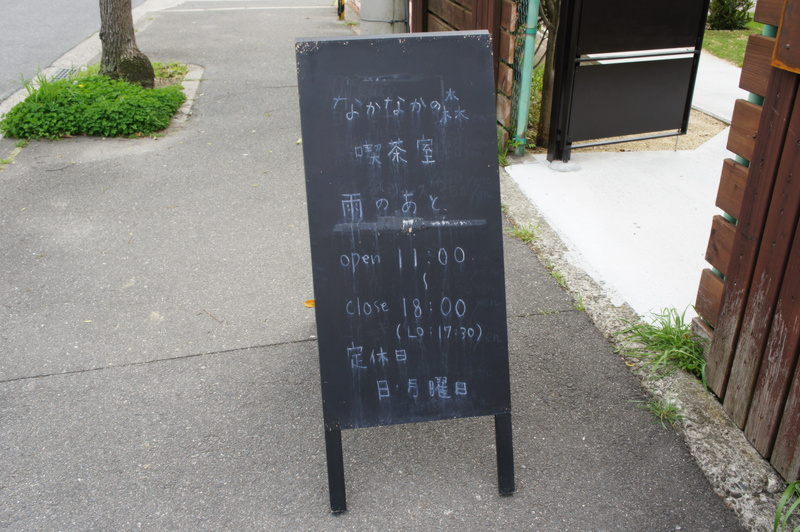 なかなかの森
喫茶室
雨のあと
open 11:00
〜
close 18:00
(LO:17:30)
定休日
日・月曜日